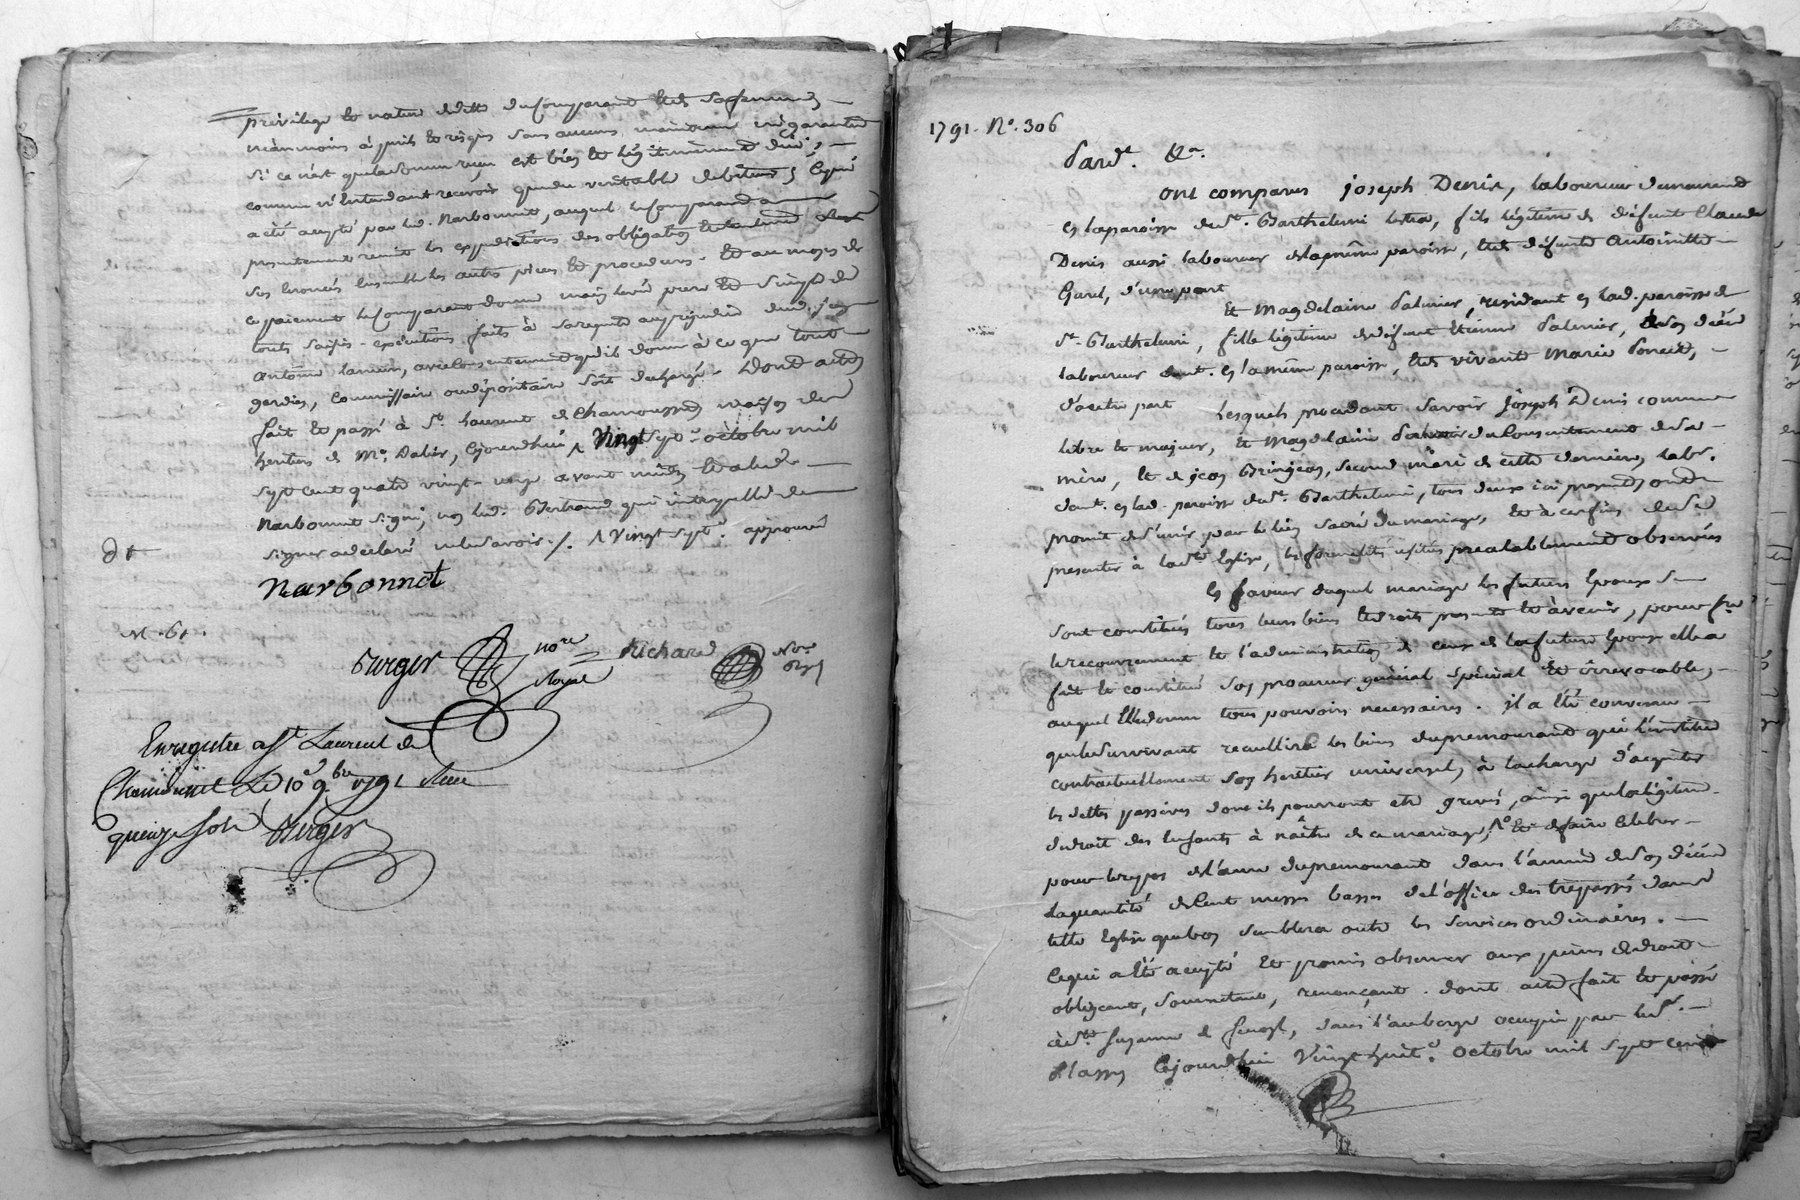 privilege et nature de dette du comparant et de sa femme,
néanmoins à perils et risques sans aucune maintenue ni garantie
si ce n'est que la somme reçue est bien et légitimement due,
comme n'entendant recevoir que du veritable debiteur, ce qui
a été accepté par led. Narbonnet, auquel le comparant a
presentement remis les expeditions des obligation et
ensemble les autres pieces et procedures. et au moyen de
ce paiement le comparant donne main levée pure et simple de
touts saisis-executions faits à sa requete au prejudice dud.
antoine consentement qu'il donne à ce que tout
gardien, commissaire ou dépositaire soit dechargé. Dont acte
fait et passé à St. Laurent de Chamousset maison des
heritiers de Me. Dalin, cejourdhui ^ Vingt sept octobre mil
sept cent quatre vingt onze avant midy et a led.
Narbonnet signé, non led. Bertrand qui interpellé de
signer a declaré ne le savoir ./. ^ Vingt sept. approuvé
Narbonnet
Purger nore Royal Richard Nore Royl
Enregistré a St Laurent de
Chamousset Le 10e 9bre 1791 Reçu
quinze sols Purger
1791. No. 306
Pard. &a.
ont comparus joseph Denis, laboureur demeurant
en la paroisse de St. Barthelemi lestra, fils légitime de défunt Claude
Denis aussi laboureur de la même paroisse, et de défunte Antoinette
Garel, d'une part
Et Magdelaine Palmier, residant en lad. paroisse de
St. Barthelemi, fille légitime de défunt Etienne Palmier, à son décés
laboureur demt. en la même paroisse, et de vivante Marie Poncet,
d'autre part Lesquels procedant savoir joseph Denis comme
libre et majeur, et Magdelaine Palmier du consentement de sa
mère, et de jean Bringeon, second mari de cette derniere, labr.
demt. en lad. paroisse de St. Barthelemi, tous deux ici presents, ont
promis de s'unir par le lien sacré du mariage, et à ces fins de se
presenter à la Ste Eglise, les formalités usités prealablement observées
En faveur duquel mariage les futurs Epoux se
sont constitués tous leurs biens et droits presents et à venir, pour fre
le recouvrement et l'administration de ceux de la future Epouse elle a
fait et constitué son procureur général spécial et irrevocable,
auquel Elle donne tous pouvoirs necessaires. il a été convenu
que le survivant recueillira les biens du premourant qui l'institue
contractuellement son heritier universel, à la charge d'acquitter
les dettes passives dont ils pourront etre grevés, ainsi que la légitime
de droit des enfants à naître de ce mariage, et de faire celebrer
pour le repos de l'ame du premourant dans l'année de son décés
la quantité de cent messes basses de l'office des trepassés dans
telle Eglise que bon semblera outre les services ordinaires.
Ce qui a été accepté et promis observer aux peines de droit
obligeant, soumettant, renonçant. dont acte fait et passé
à Ste. Suzanne de l'auberge occupée par le Sr.
Plasson Cejourdhui Vingt huit. Octobre mil sept cent